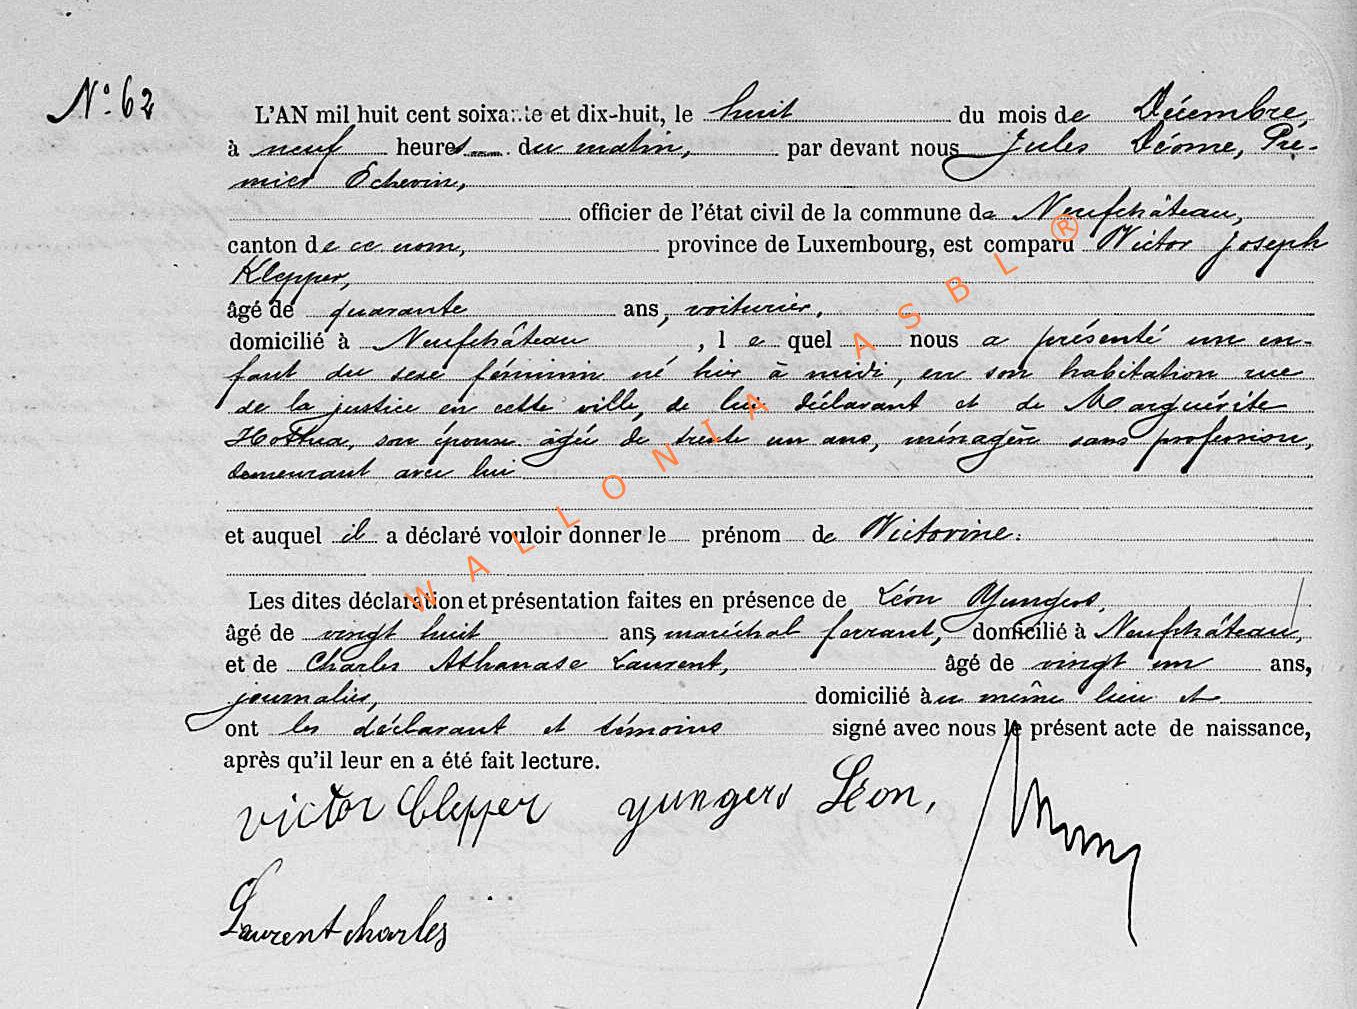 N° 62
L'AN mil huit cent soixante et dix-huit, le huit du mois de Décembre,
à neuf heures du matin, par devant nous Jules Déome, Pre-
mier Echevin,
officier de l'état civil de la commune de Neufchâteau,
canton de ce nom, province de Luxembourg, est comparu Victor Joseph
Klepper,
âgé de quarante ans, voiturier,
domicilié à Neufchâteau, le quel nous a présenté un en-
fant du sexe féminin né hier à midi, en son habitation rue
de la justice en cette ville, de lui déclarant et de Marguérite
Hottua, son épouse âgée de trente un ans, ménagère sans profession,
demeurant avec lui
et auquel il a déclaré vouloir donner le prénom de Victorine.
Les dites déclaration et présentation faites en présence de Léon Yungers,
âgé de vingt huit ans, maréchal ferrant, domicilié à Neufchâteau,
et de Charles Athanase Laurent, âgé de vingt un ans,
journalier, domicilié au même lieu et
ont les déclarant et témoins signé avec nous le présent acte de naissance,
après qu'il leur en a été fait lecture.
Victor Clepper yungers Léon,
Laurent charles
WALLONIA ASBL ®